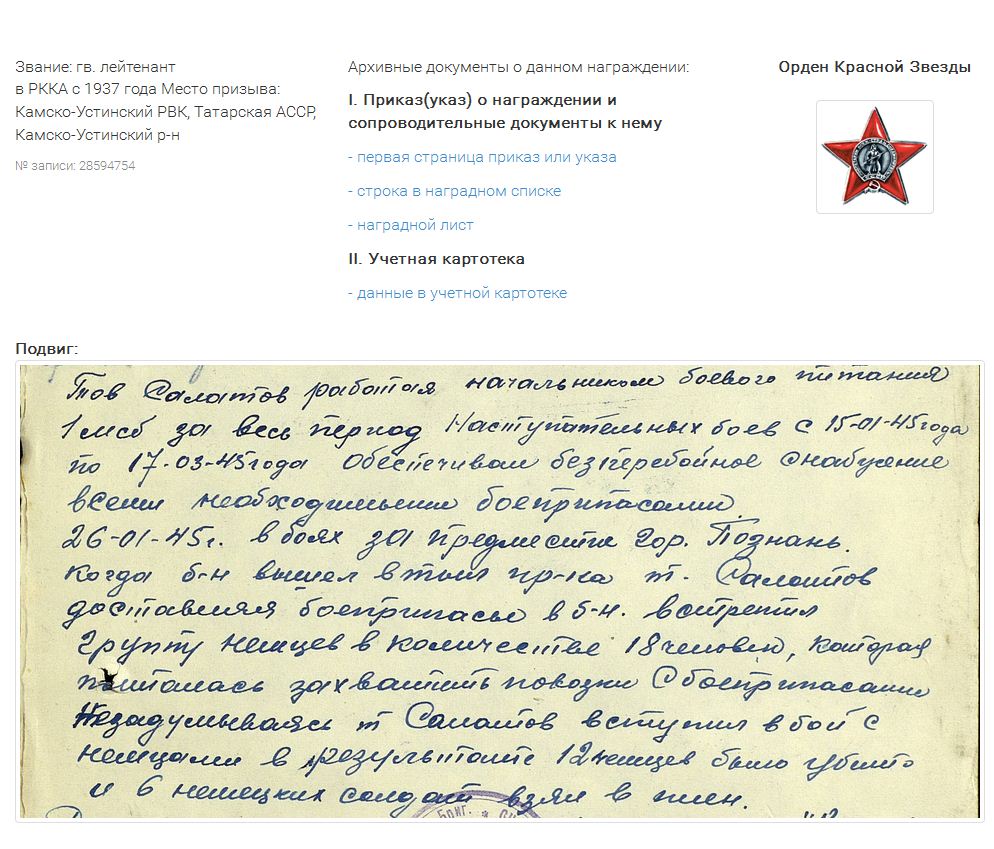 Звание: гв. лейтенант
в РККА с 1937 года Место призыва:
Камско-Устинский РВК, Татарская АССР,
Камско-Устинский р-н
№ записи: 28594754
Архивные документы о данном награждении:
I. Приказ(указ) о награждении и
сопроводительные документы к нему
- первая страница приказ или указа
- строка в наградном списке
- наградной лист
II. Учетная картотека
- данные в учетной картотеке
Орден Красной Звезды
Подвиг:
Тов Салатов работая начальником боевого питания
1 мсб за весь период Наступательных боев с 15-01-45 года
по 17-03-45 года обеспечивал бесперебойное снабжение
всеми необходимыми боеприпасами.
26-01-45 г. в боях за предместья гор. Познань.
когда б-н вышел в тыл пр-ка т. Салатов
доставляя боеприпасы в б-н. встретил
группу немцев в количестве 18 человек, которая
пыталась захватить повозки с боеприпасами
Незадумываясь т Салатов вступил в бой с
немцами в результате 12 немцев было убито
и 6 немецких солдат взял в плен.
Бриг.